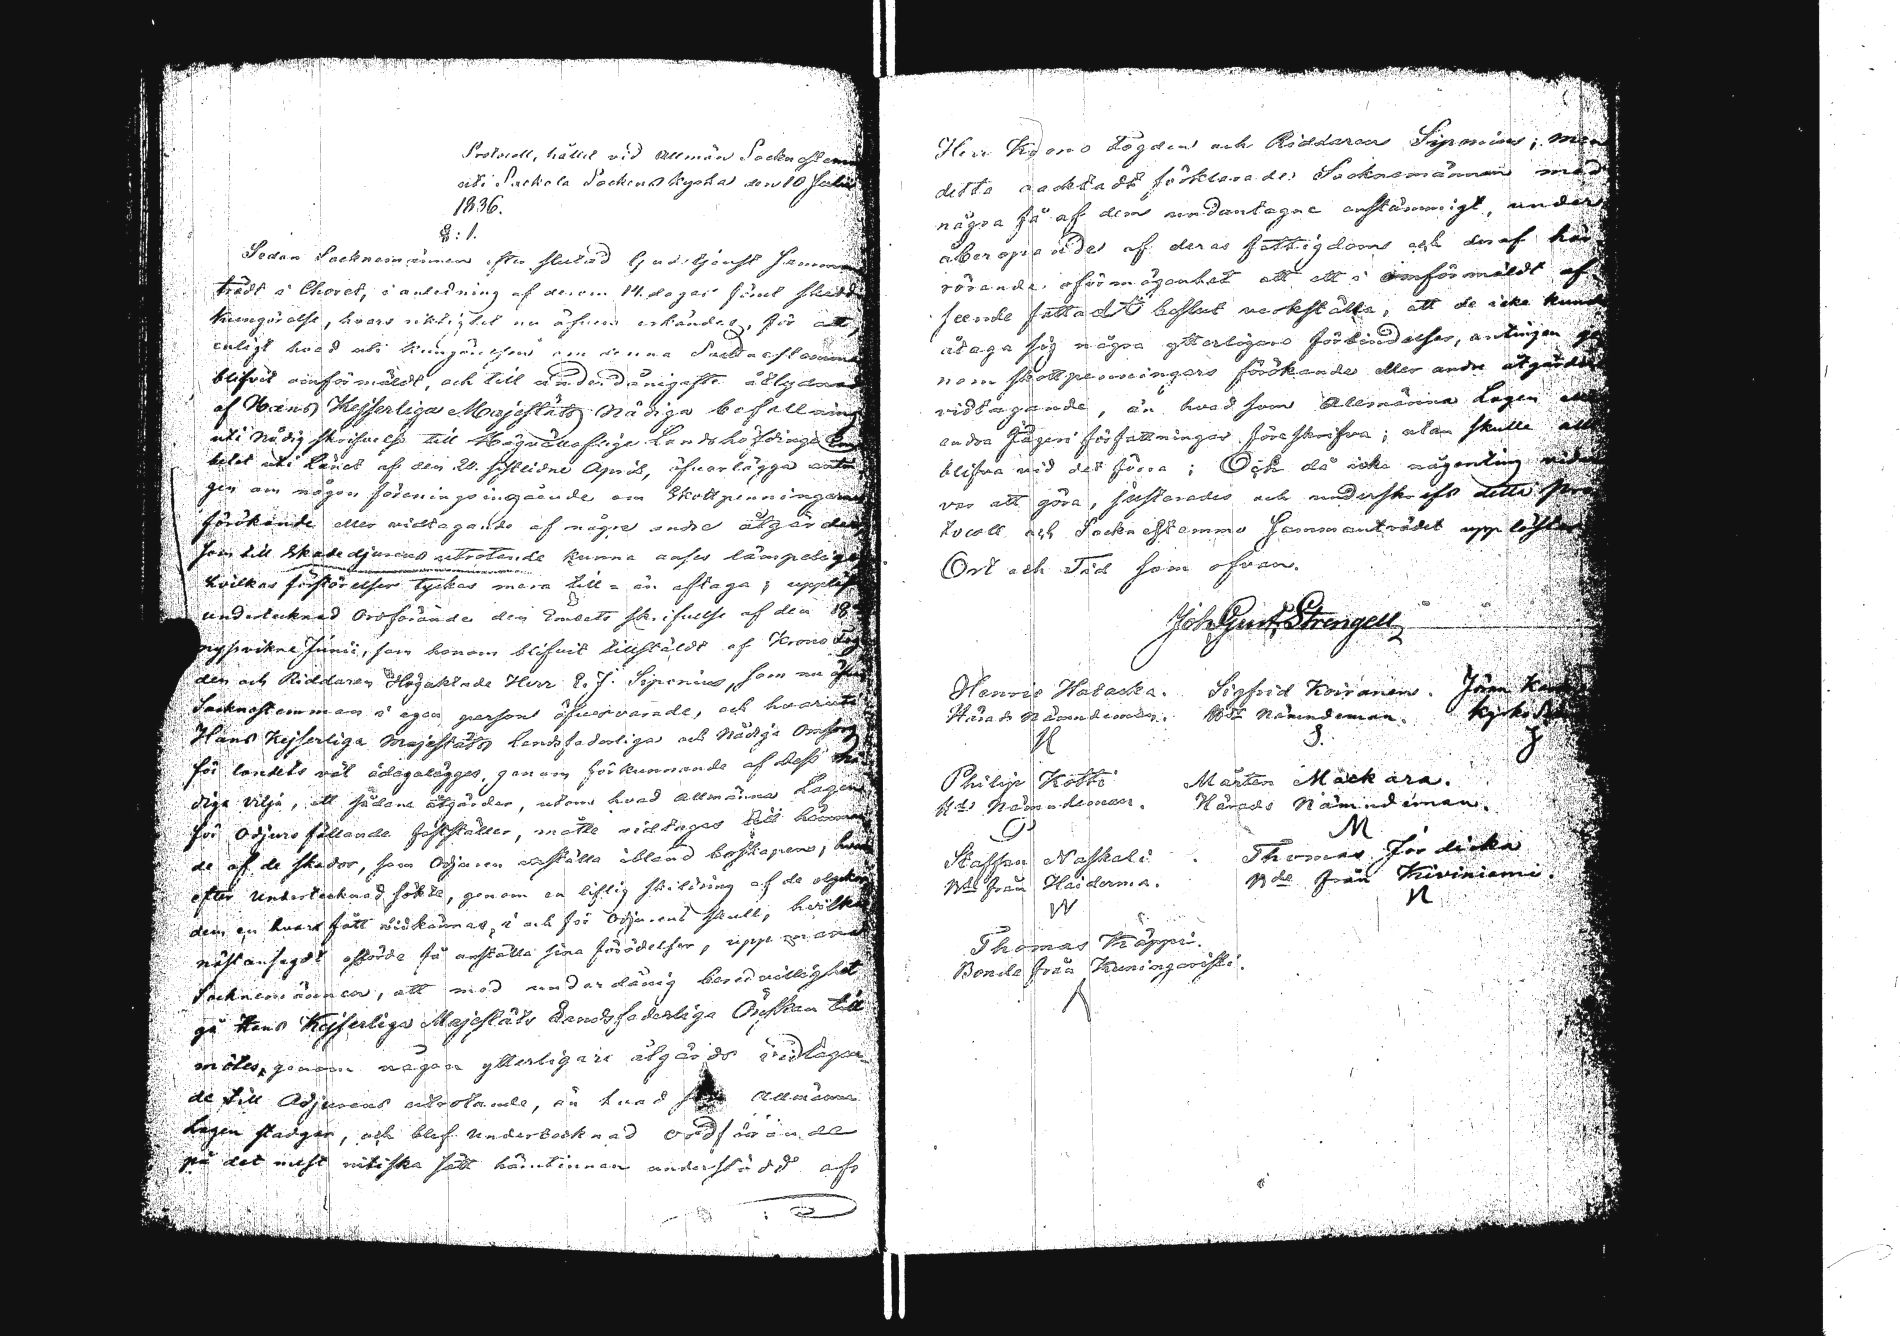 Protocoll, hållet vid Allmän Sockenstemma
uti Sackola Sockens Kyrka den 10 Julii
1836.
§: 1.
Sedan Socknemännen efter slutad Gudstjenst samman
trädt i Choret, i anledning af derom 14. dagar förut skedd
kungörelse, hvars riktighet nu äfven erkändes, för att
enligt hvad uti kungörelsen om denna Socknestemma
blifvit omförmäldt, och till underdånigste åtlydnad
af Hans Kejserliga Majestäts Nådiga befallning
uti Nådig skrifvelse till Landshöfdinge Em
betet uti Länet af den 20. sistlidne April, öfverlägga antin
gen om någon förenings ingående om Skottpenningarnes
förökande eller vidtagande af några andra åtgärder,
som till Skadedjurens utrotande kunna anses lämpeliga,
hvilkas förstörelser tyckas mera till= än aftaga; uppläste
undertecknad Ordförande den Embets skrifvelse af den 18
nyssvikne Junii, som honom blifvit tillstäldt af Krono Fog
den och Riddaren Högaktade Herr E. J. Sirenius, som nu äfven
Socknestemman i egen person öfvervarade, och hvaruti
Hans Kejserliga Majestäts landsfaderliga och Nådiga Omsorg
för landets väl ådagalägges, genom förkunnande af dess Nå
diga vilja, att sådana åtgärder, utom hvad Allmänna Lagen
för Odjurs fällande fastställer, måtte vidtagas till hämman
de af de skador, som Odjuren anställa ibland boskapen; hvar
efter Undertecknad sökte, genom en liflig skildring af de olyckor
dem en hvar fått vidkännas, i och för Odjurens skull, hvilka
nästan sagdt ostörde få anställa sina förödelser, uppmana
Socknemännen, att med underdånig beredvillighet
gå Hans Kejserliga Majestäts Landsfaderliga Önskan till
mötes, genom någon ytterligare åtgärds vidtagan
de till Odjurens utrotande, än hvad som Allmänna
Lagen stadgar, och blef Undertecknad ordförande
på det mest nitiska sätt härutinnan understödd af
Herr Krono Fogden och Riddaren Sirenius; men
detta oacktadt förklarade Socknemännen med
några få af dem undantagne enstämmigt, under
åberopande af deras fattigdom och deraf här
rörande oförmögenhet att ett i omförmäldt af
seende fattadt beslut verkställa, att de icke kunde
åtaga sig några ytterligare förbindelser, antingen ge
nom skottpenningars förökande eller andra åtgärders
vidtagande, än hvad som Allmänna Lagen och
andra Jägeri författningar föreskrifva; utan skulle allt
blifva vid det förra; Och då icke någonting vidare
var att göra, justerades och underskrefs detta pro
tocoll och Socknestemmo Sammanträdet upplöstes
Ort och Tid som ofvan.
Joh. Gust. Strengell
Henric Hatacka. Sigfrid Koiranen. Jöran
Härads Nämndeman. Nämndeman. Kyrko
H S. J
Philip Kotti Mårten Mackara.
Hds Nämndeman. Härads Nämndeman.
P M
Staffan Naskali Thomas Jördicka
Bde från Haiderma. Bde från Kiviniemi.
Thomas Käppi.
Bonde från Kuningaristi.